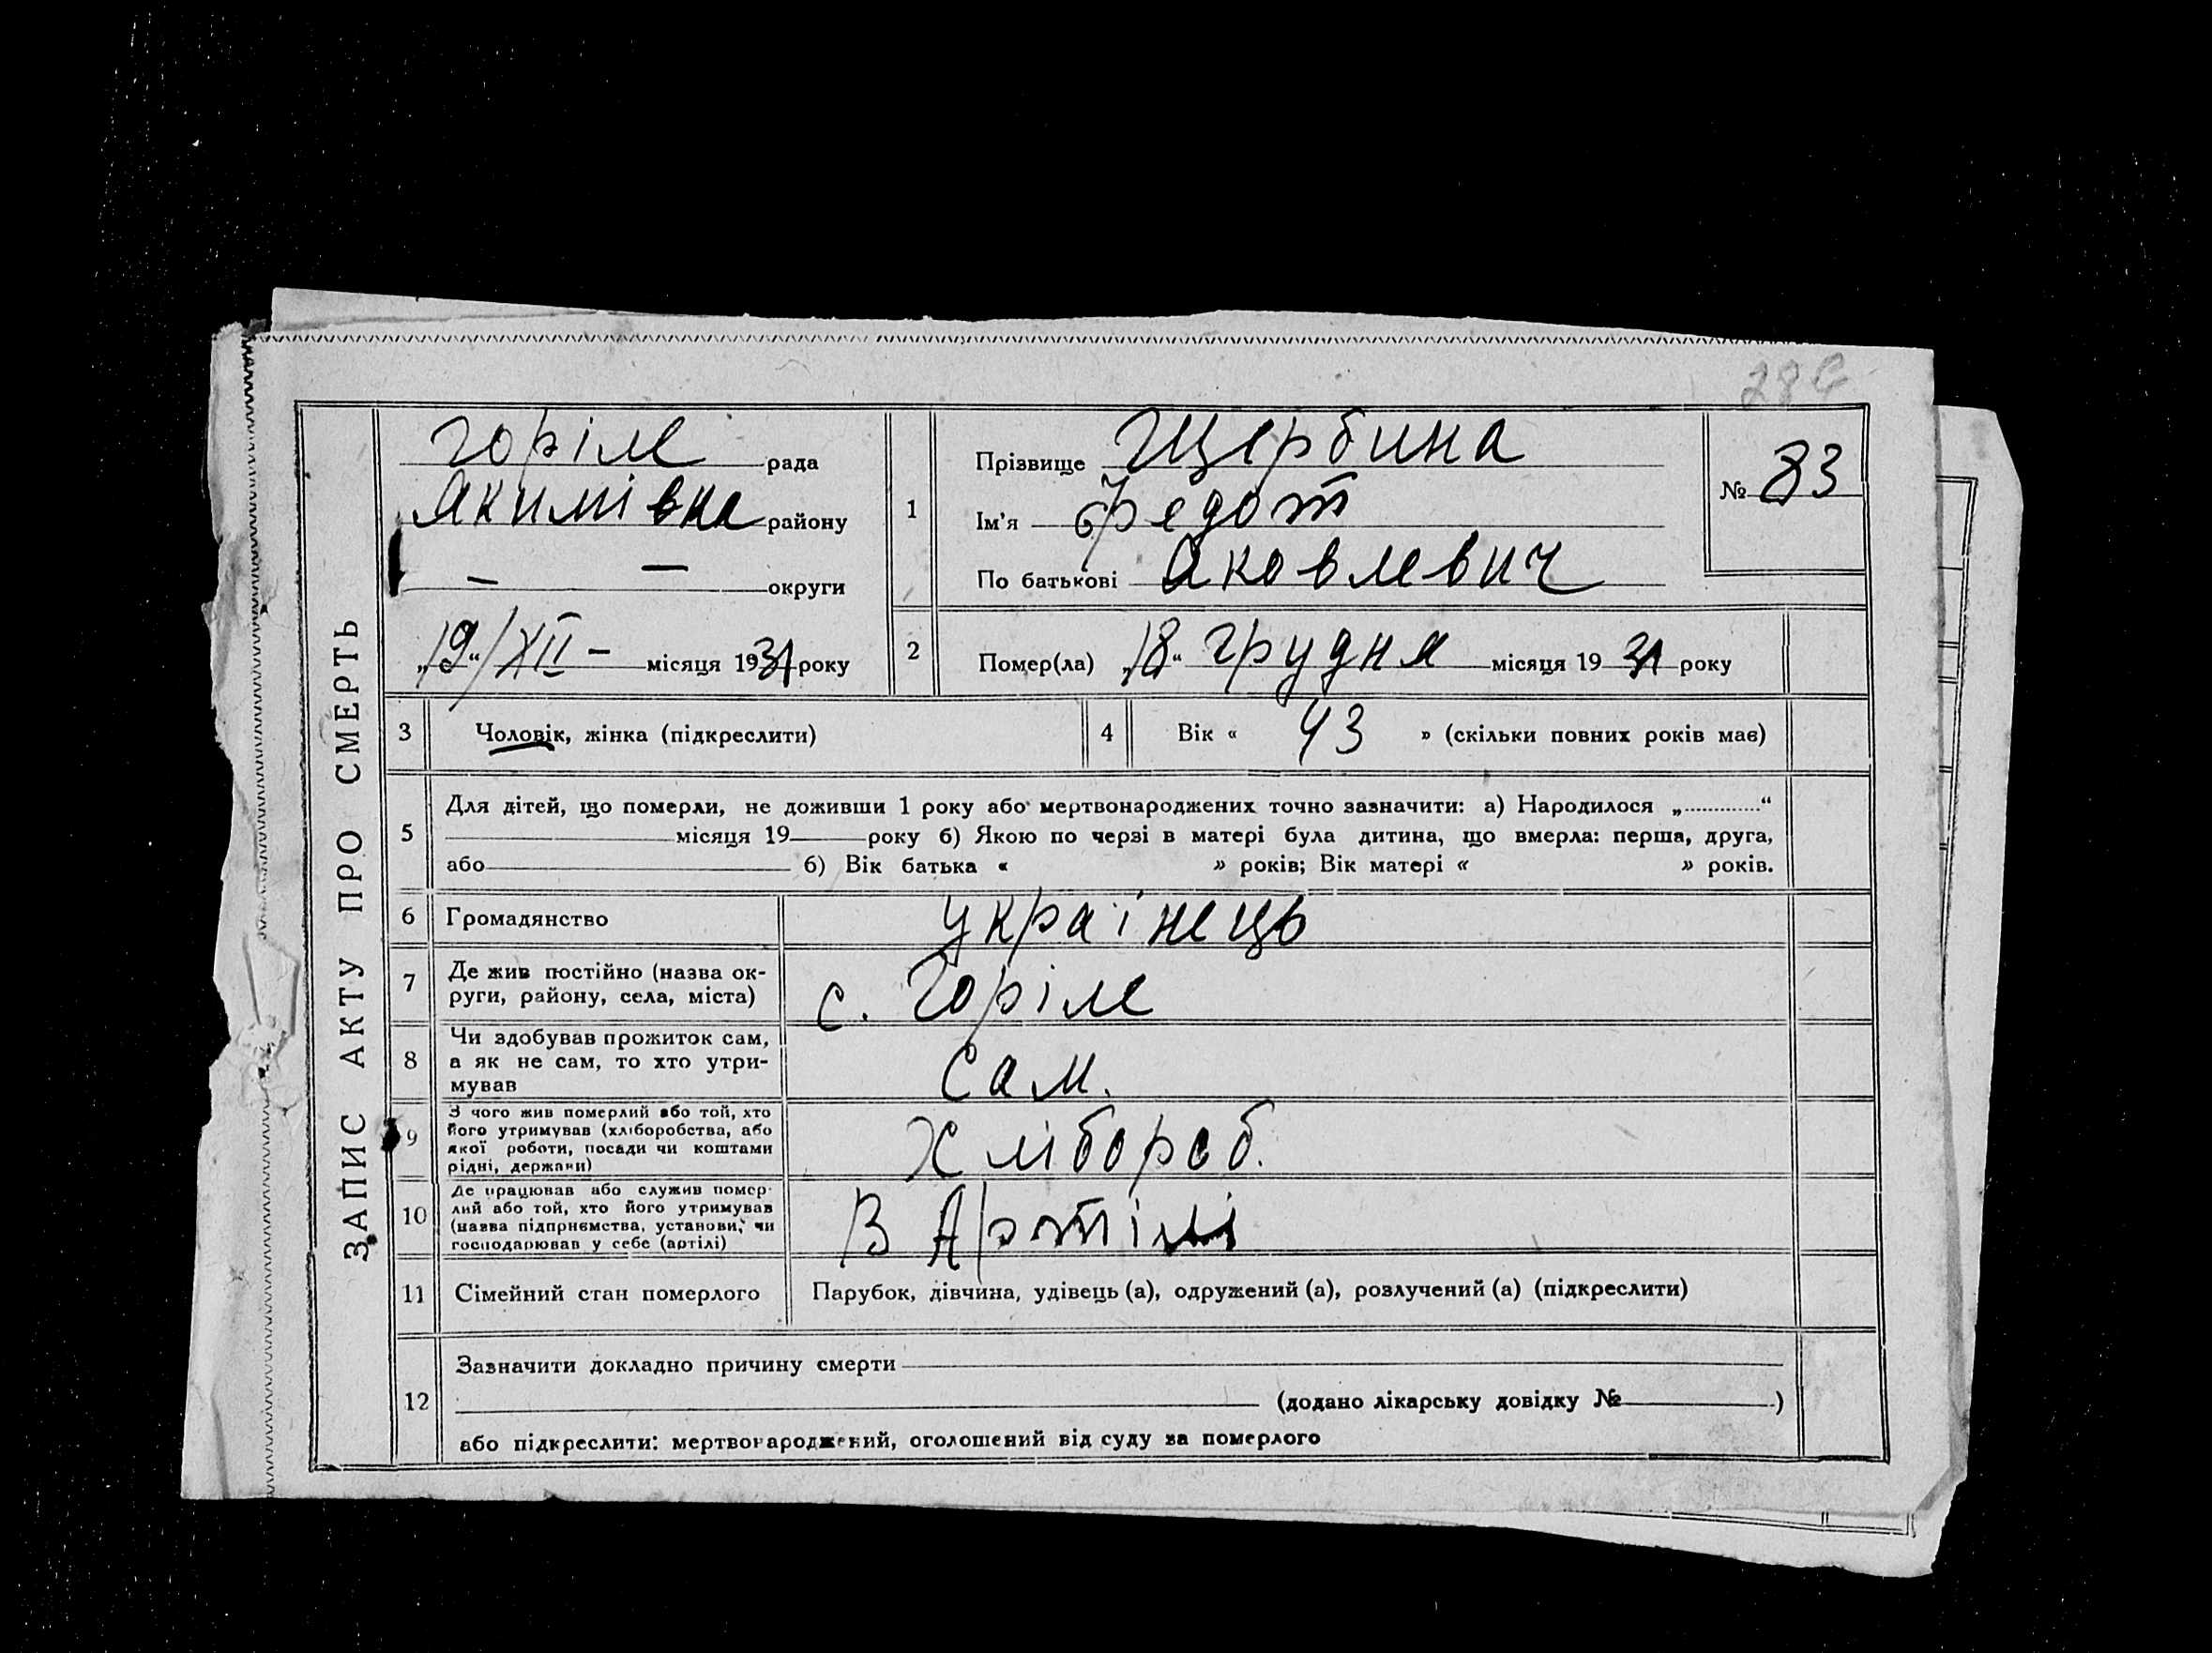 ЗАПИС АКТУ ПРО СМЕРТЬ
Горіле рада
Якимівка району
— — округи
„19“/XII – місяця 1931 року
1
Прізвище Щербина
Ім'я Федот
По батькові Яковлевич
№ 83
2
Помер(ла) „18“ грудня місяця 1931 року
3 Чоловік, жінка (підкреслити)
4 Вік « 43 » (скільки повних років має)
5
Для дітей, що померли, не доживши 1 року або мертвонароджених точно зазначити: а) Народилося „............“
місяця 19 року б) Якою по черзі в матері була дитина, що вмерла: перша, друга,
або б) Вік батька « » років; Вік матері « » років.
6 Громадянство українець
7
Де жив постійно (назва ок-
руги, району, села, міста)
с. Горіле
8
Чи здобував прожиток сам,
а як не сам, то хто утри-
мував
Сам.
9
З чого жив померлий або той, хто
його утримував (хліборобства, або
якої роботи, посади чи коштами
рідні, держави)
Хлібороб.
10
Де працював або служив помер-
лий або той, хто його утримував
(назва підприємства, установи, чи
господарював у себе (артілі)
В Артілі
11 Сімейний стан померлого
Парубок, дівчина, удівець (а), одружений (а), розлучений (а) (підкреслити)
12
Зазначити докладно причину смерти
(додано лікарську довідку № )
або підкреслити: мертвонароджений, оголошений від суду за померлого